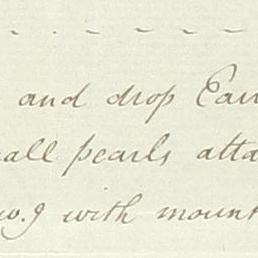 and drop Ear
all pearls atta
w.g with mount